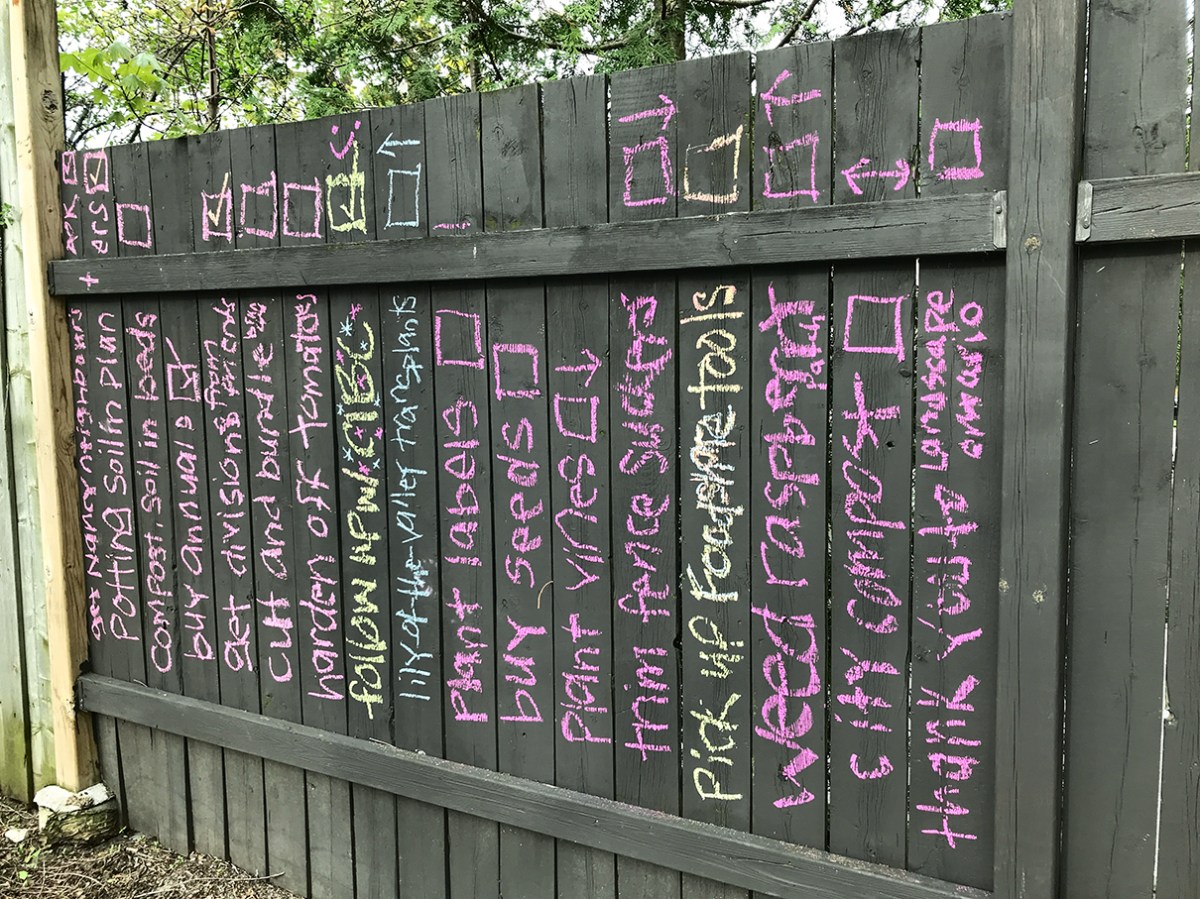 get Nancy neighbours
potting soil in plan
ters
compost, soil in beds
buy annuals
get divisions from friends
cut and bundle
harden off tomatoes
follow up w/ CIBC
lily of the valley transplants
plant labels
buy seeds
plant vines
trim fence suckers
Pick up Foodshare tools
weed raspberry
city compost
thank you to landscape